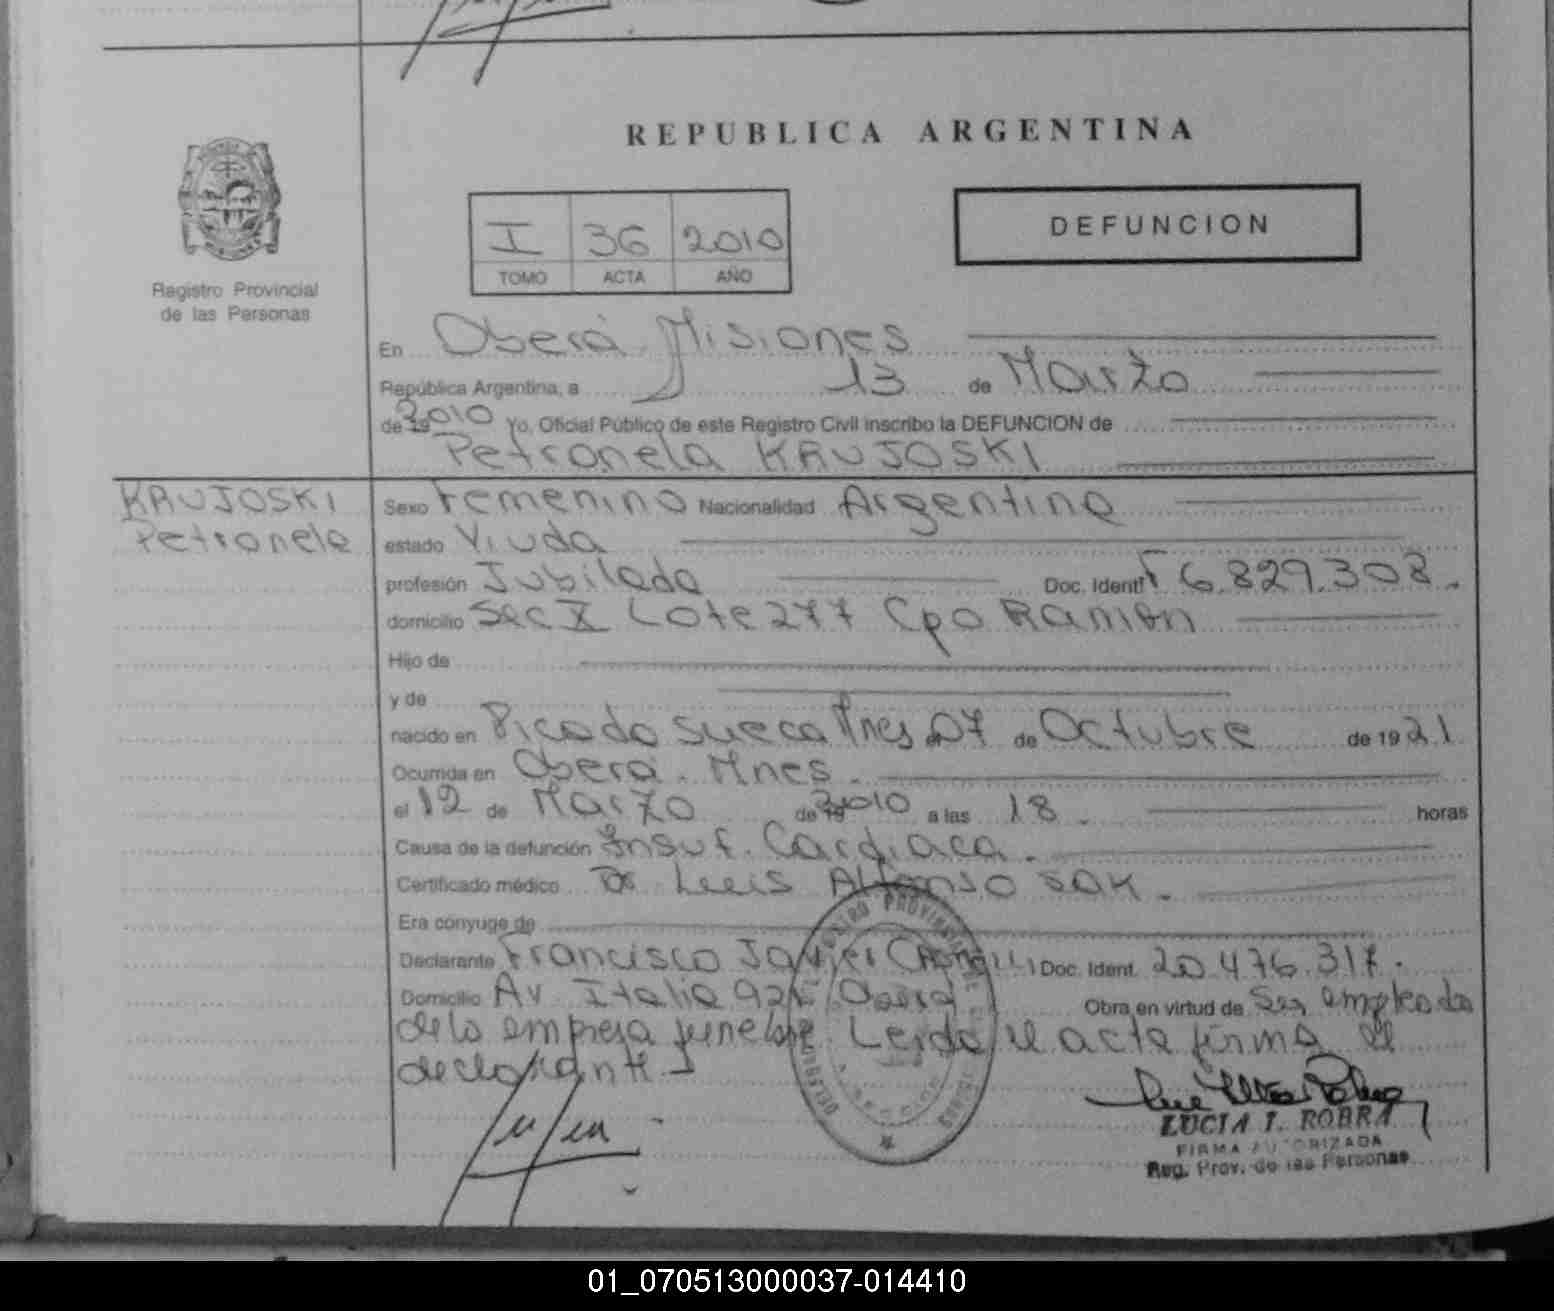 REPUBLICA ARGENTINA
I 36 2010
TOMO ACTA AÑO
DEFUNCION
Registro Provincial
de las Personas
En Oberá Misiones
República Argentina, a 13 de Marzo
de 19 2010 Yo, Oficial Público de este Registro Civil inscribo la DEFUNCION de
Petronela KRUJOSKI
KRUJOSKI
Petronela
Sexo Femenino Nacionalidad Argentina
estado Viuda
profesión Jubilada Doc. Ident. F 6.829.308.
domicilio Sec X Lote 277 Cpo Ramón
Hijo de
y de
nacido en Picada Sueca Mnes 07 de Octubre de 1921
Ocurrida en Oberá. Mnes.
el 12 de Marzo de 19 2010 a las 18. horas
Causa de la defunción Insuf. Cardiaca.
Certificado médico Dr Luis Alfonso SAK.
Era conyuge de
Declarante Francisco Javier Doc. Ident. 20.476.317.
Domicilio Av Italia Oberá Obra en virtud de Ser empleado
de la empresa funebre Leida el acta firma el
declarante
LUCIA I. ROBRA
FIRMA AUTORIZADA
Reg. Prov. de las Personas
01_070513000037-014410